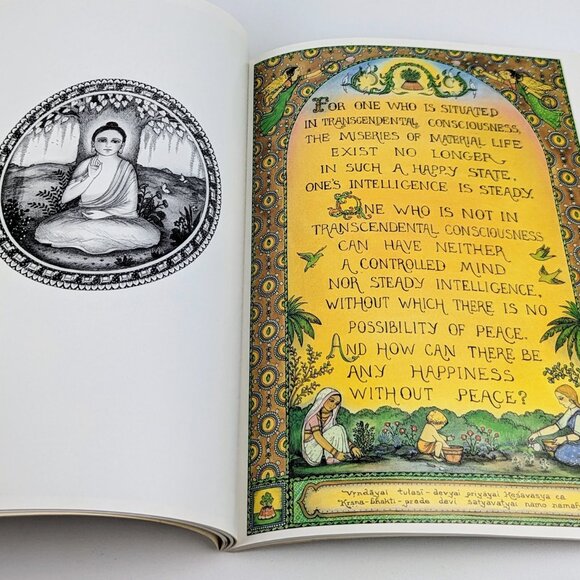 FOR ONE WHO IS SITUATED
IN TRANSCENDENTAL CONSCIOUSNESS,
THE MISERIES OF MATERIAL LIFE
EXIST NO LONGER.
IN SUCH A HAPPY STATE,
ONE'S INTELLIGENCE IS STEADY.
ONE WHO IS NOT IN
TRANSCENDENTAL CONSCIOUSNESS
CAN HAVE NEITHER
A CONTROLLED MIND
NOR STEADY INTELLIGENCE,
WITHOUT WHICH THERE IS NO
POSSIBILITY OF PEACE.
AND HOW CAN THERE BE
ANY HAPPINESS
WITHOUT PEACE?
Vṛndāyai tulasī-devyai priyāyai Keśavasya ca
Kṛṣṇa-bhakti-prade devi satyavatyai namo namaḥ